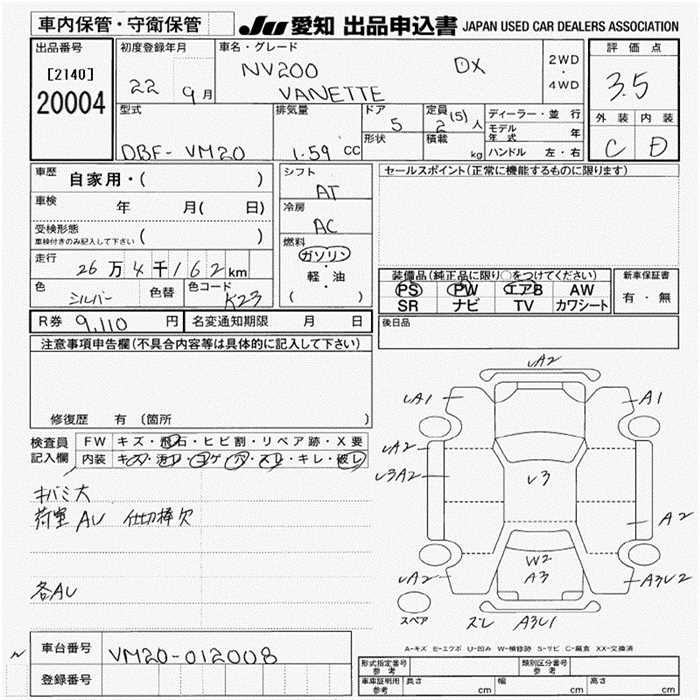 車内保管・守衛保管
JU 愛知 出品申込書 JAPAN USED CAR DEALERS ASSOCIATION
出品番号
[2140]
20004
初度登録年月
22 9月
車名・グレード
NV200 DX
VANETTE
2WD
・
4WD
評価点
3.5
外装 内装
C D
型式
DBF-VM20
排気量
1.59 CC
ドア
5
形状
定員
2(5)人
積載
kg
ディーラー・並行
モデル年式 年
ハンドル 左・右
車歴 自家用・( )
車検 年 月( 日)
受検形態
車検付きのみ記入して下さい ( )
走行
26万4千162km
色 シルバー 色替 色コード K23
シフト
AT
冷房
AC
燃料
ガソリン
・
軽・油
( )
セールスポイント(正常に機能するものに限ります)
装備品(純正品に限り○をつけてください)
PS PW エアB AW
SR ナビ TV カワシート
新車保証書
有・無
後日品
R券 9,110 円 名変通知期限 月 日
注意事項申告欄(不具合内容等は具体的に記入して下さい)
修復歴 有 (箇所 )
検査員記入欄
FW キズ・飛石・ヒビ割・リペア跡・X要
内装 キズ・汚レ・コゲ・穴・スレ・キレ・破レ
キバミ大
荷室AU 仕切棒欠
各AU
UA2
UA1 A1
UA2
U3A2
U3
A2
W2
A3
UA2 A3U2
スペア
ズレ A3U1
A-キズ E-エクボ U-凹み W-補修跡 S-サビ C-腐食 XX-交換済
車台番号 VM20-012008
登録番号
形式指定番号
参考
類別区分番号
参考
車庫証明用
参考
長さ cm 幅 cm 高さ cm